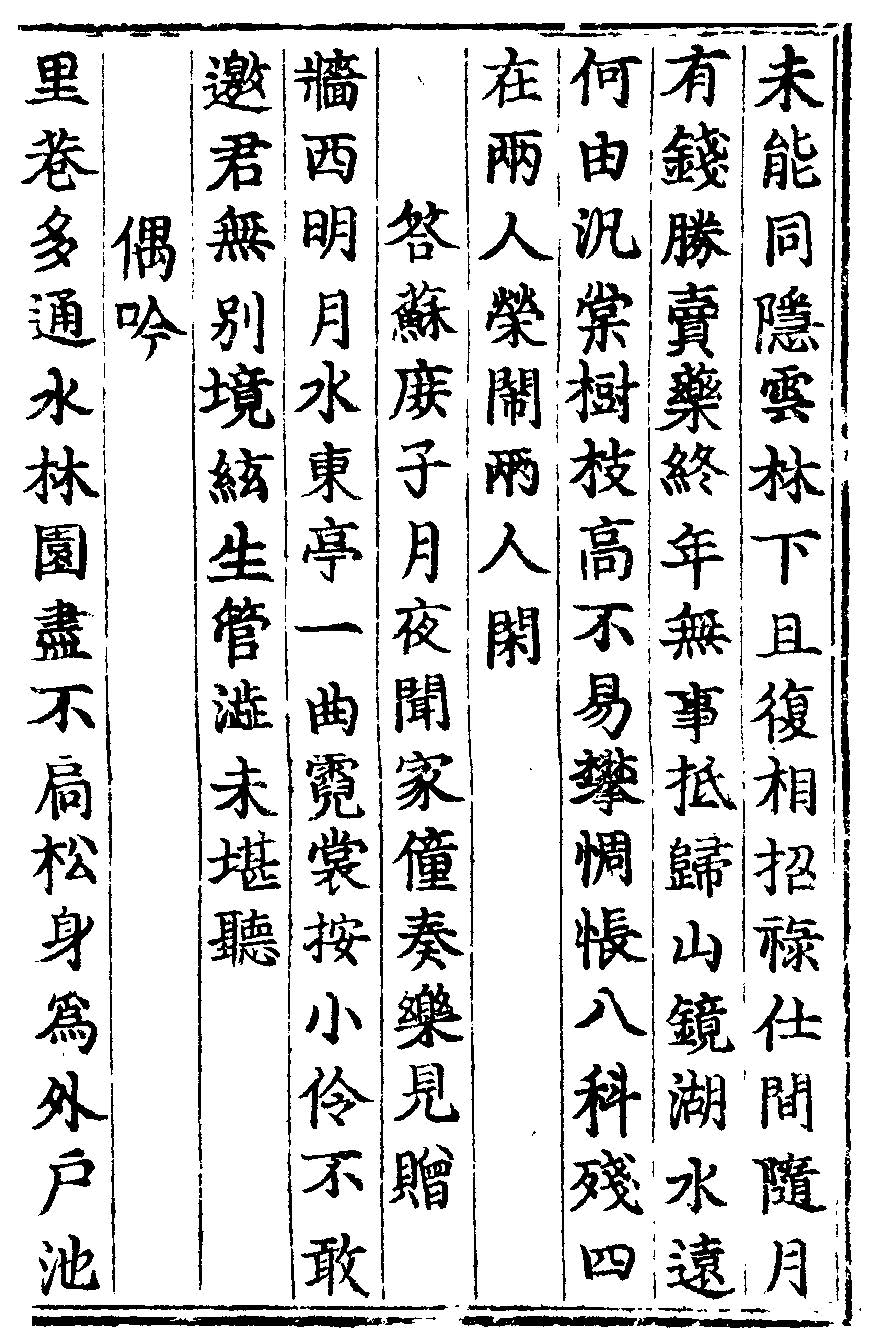 未能同隱雲林下且復相招祿仕間隨月
有錢勝賣藥終年無事抵歸山鏡湖水遠
何由汎棠樹枝高不易攀惆悵八科殘四
在兩人榮鬧兩人閑
答蘇庻子月夜聞家僮奏樂見贈
牆西明月水東亭一曲霓裳按小伶不敢
邀君無别境絃生管澁未堪聽
偶吟
里巷多通水林園盡不扃松身爲外户池